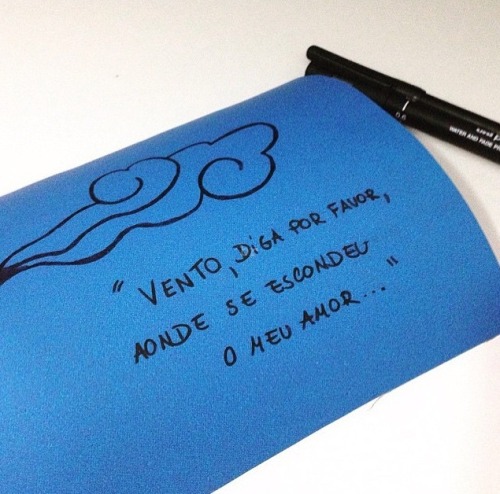 " VENTO, DIGA POR FAVOR,
AONDE SE ESCONDEU
O MEU AMOR..."
0.8
WATER AND FADE